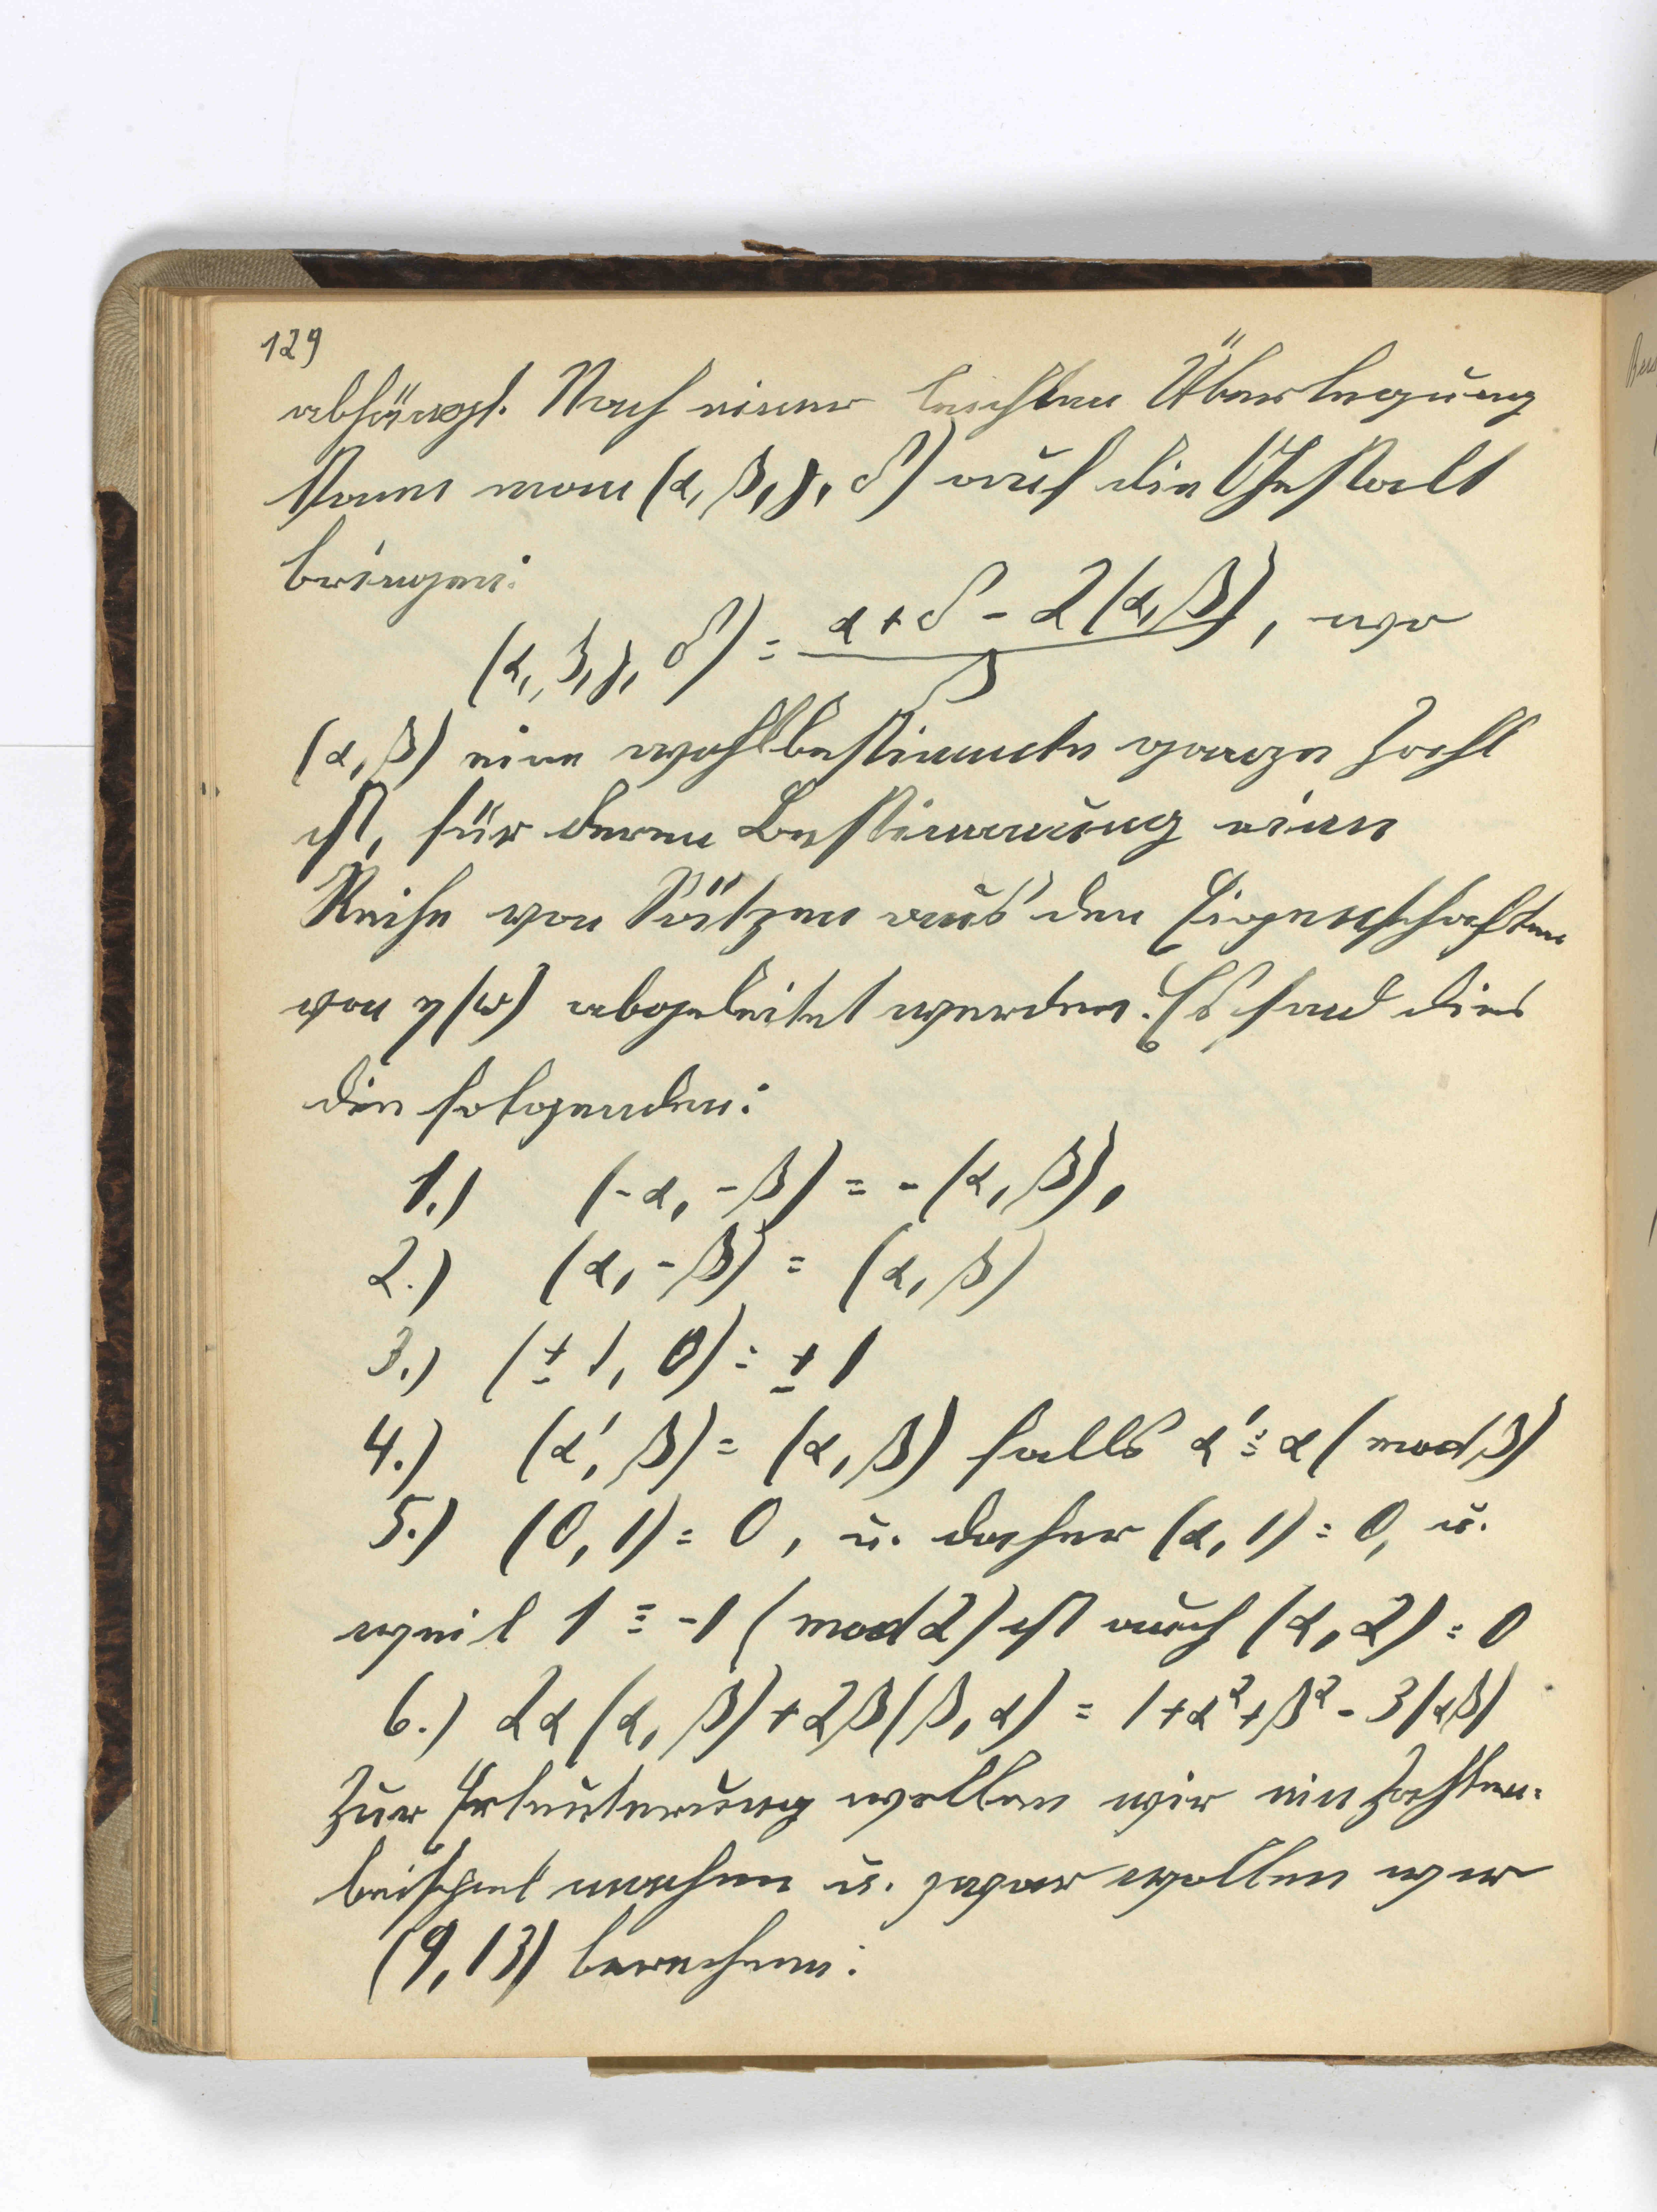 129
abhängt. Nach einer leichten Überlegung
kann man (α, β, γ, δ) auf die Gestalt
bringen:
(α, β, γ, δ) = (α + δ - 2(α, β)) / β, wo
(α, β) eine wohlbestimmte ganze Zahl
ist, für deren Bestimmung eine
Reihe von Sätzen aus den Eigenschaften
von η(ω) abgeleitet werden. Es sind dies
die folgenden:
1.) (-α, -β) = -(α, β),
2.) (α, -β) = (α, β)
3.) (±1, 0) = ±1
4.) (α', β) = (α, β) falls α' ≡ α (mod β)
5.) (0, 1) = 0, u. daher (α, 1) = 0, u.
weil 1 ≡ -1 (mod 2) ist auch (α, 2) = 0
6.) 2α(α, β) + 2β(β, α) = 1 + α² + β² - 3|αβ|
Zur Erläuterung wollen wir ein Zahlen-
beispiel machen u. zwar wollen wir
(9, 13) berechnen: